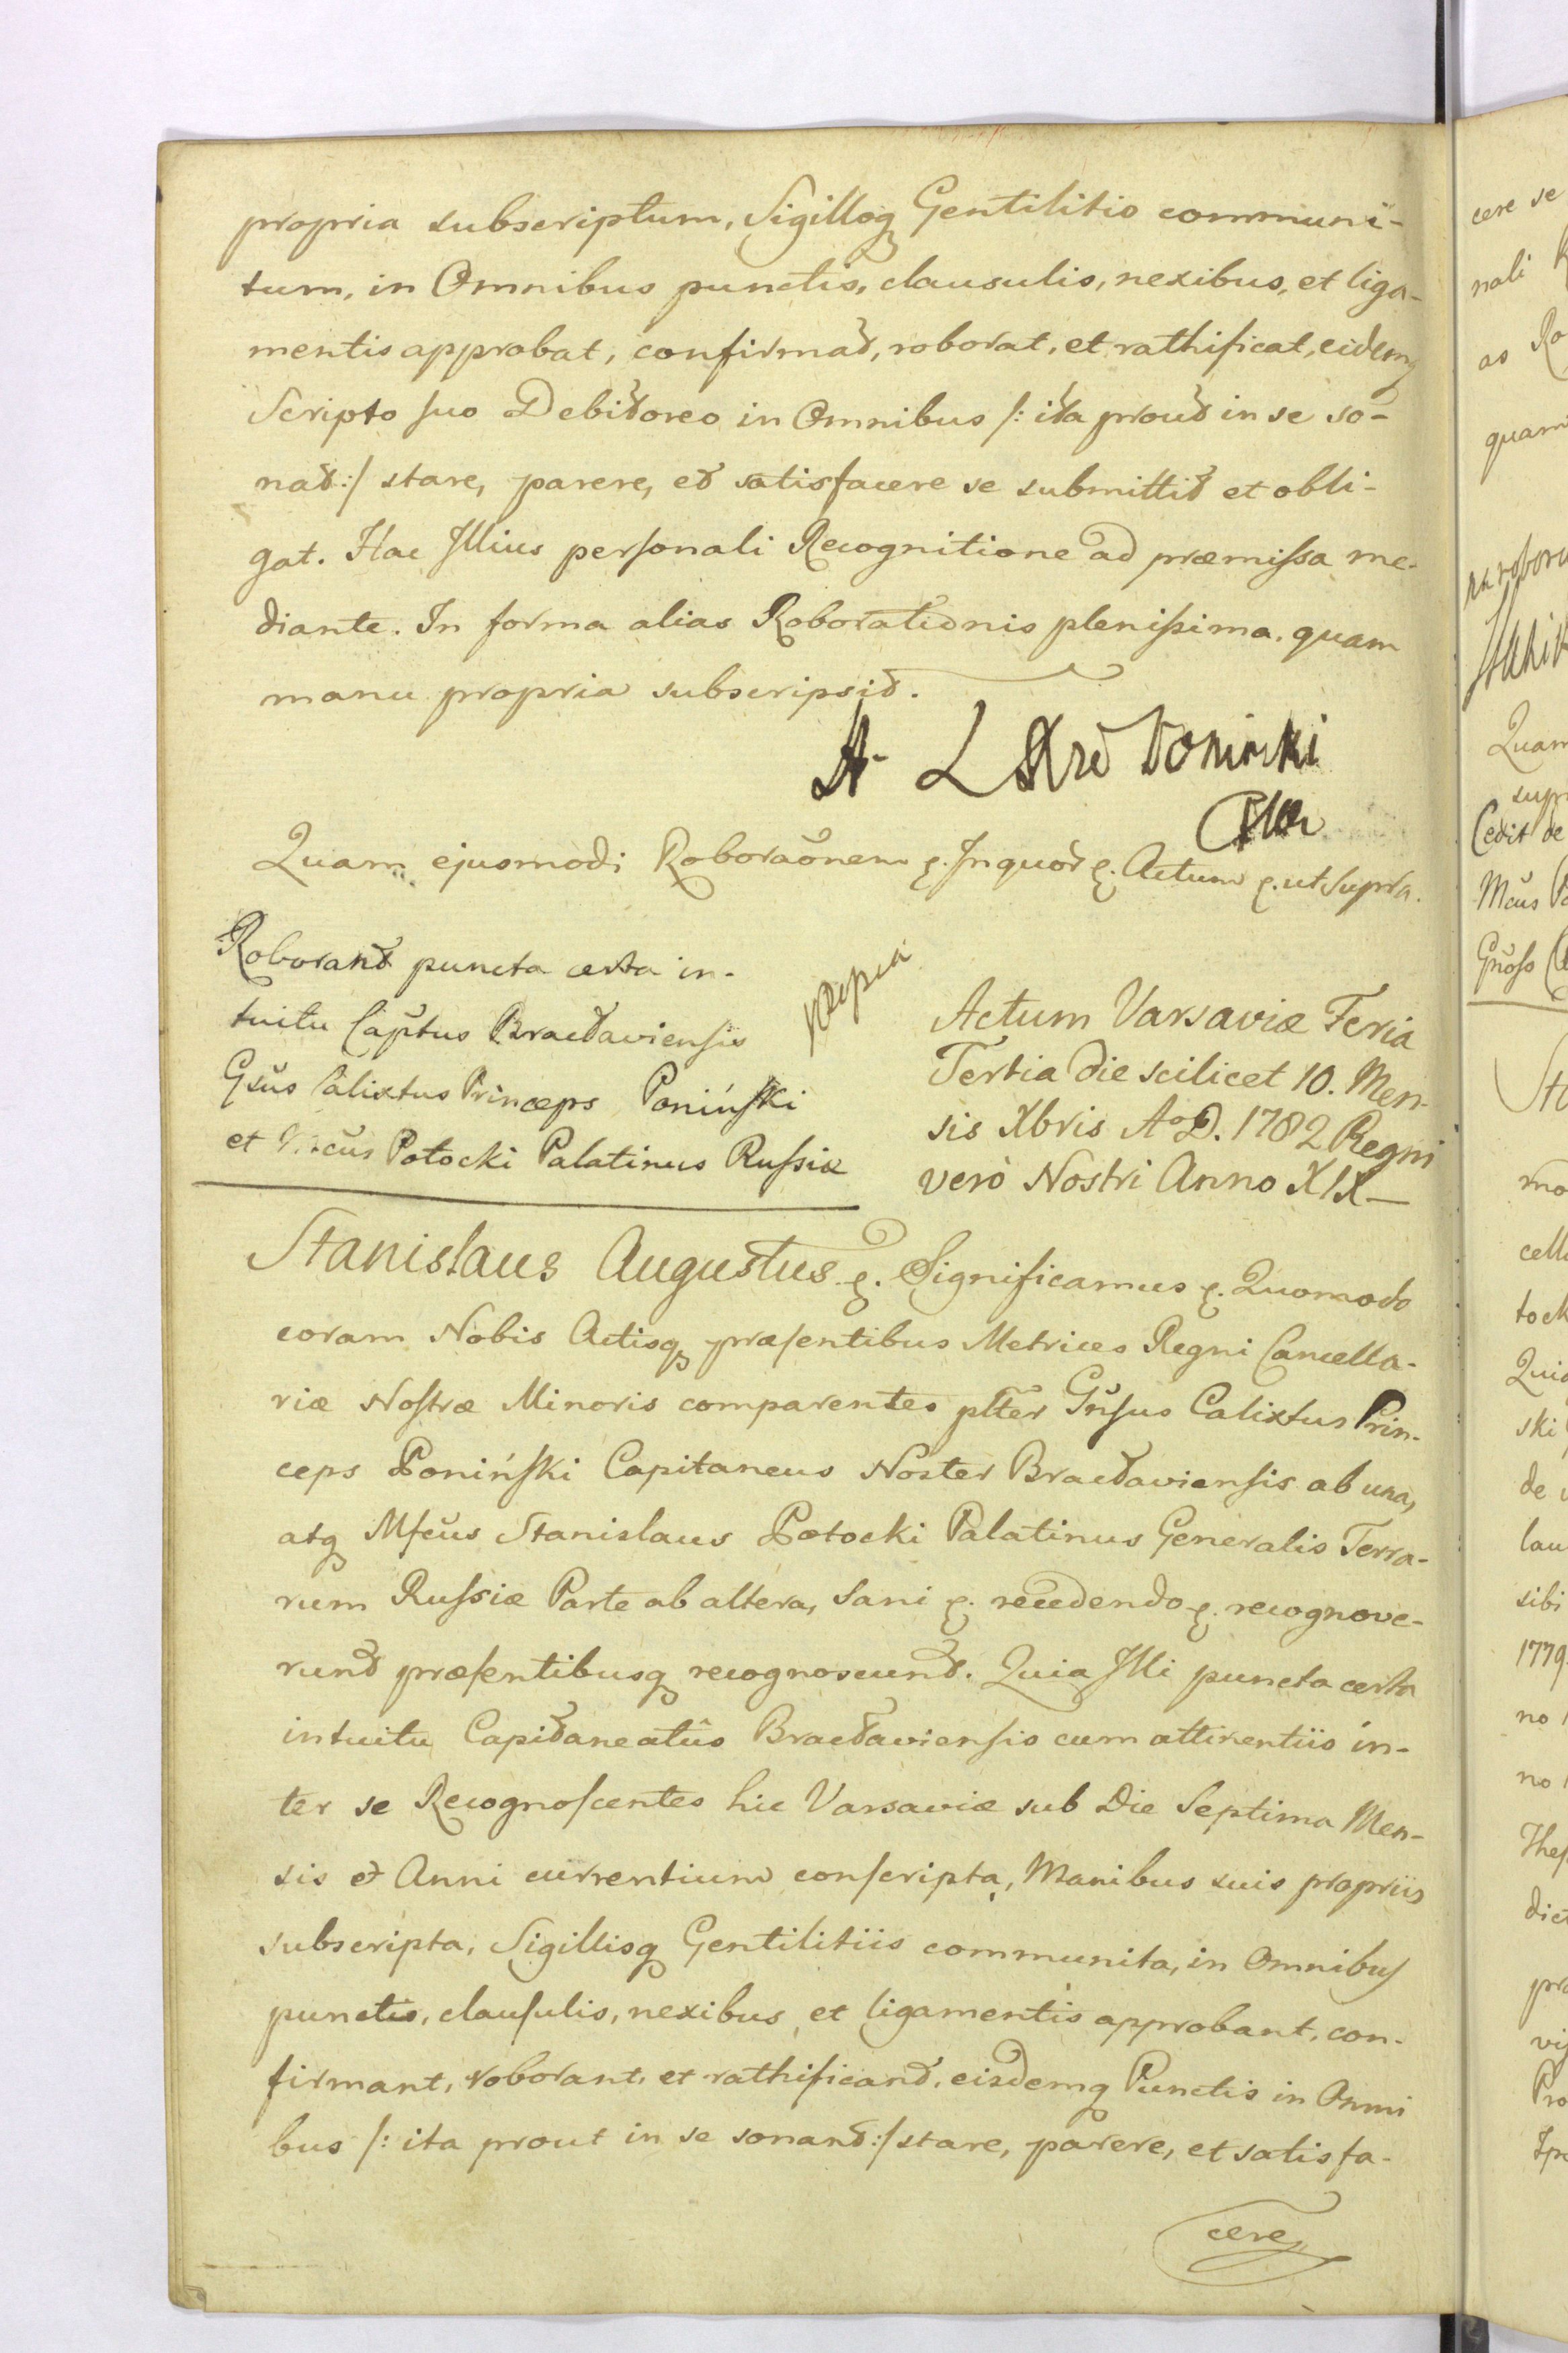 propria subscriptum, Sigilloq Gentilitio communi-
tum, in Omnibus punctis, clausulis, nexibus, et liga-
mentis approbat, confirmat, roborat, et rathificat, eidemq
Scripto suo Debitoreo in Omnibus /: ita prout in se so-
nat :/ stare, parere, et satisfacere se submittit et obli-
gat. Hac Illius personali Recognitione ad præmissa me-
diante. In forma alias Roborationis plenissima. quam
manu propria subscripsit.
A L Xże Poninski
Quam ejusmodi Roboraõnem ę. Inquor̃ ę. Actum ę. ut supra.
Roborant puncta certa in-
tuitu Captus Bractaviensis
Gsus Calixtus Princeps Poniński
et Mcus Potocki Palatinus Russiæ
Actum Varsaviæ Feria
Tertia die scilicet 10. Men-
sis Xbris A° D. 1782 Regni
verò Nostri Anno XIX –
Stanislaus Augustus ę. Significamus ę. Quomodo
coram Nobis Actisq præsentibus Metrices Regni Cancella-
riæ Nostræ Minoris comparentes plter Gnsus Calixtus Prin-
ceps Poniński Capitaneus Noster Bractaviensis ab una,
atq Mfcus Stanislaus Potocki Palatinus Generalis Terra-
rum Russiæ Parte ab altera, Sani ę. recedendo ę. recognove-
runt præsentibusq recognoscunt. Quia Illi puncta certa
intuitu Capitaneatûs Bractaviensis cum attinentiis in-
ter se Recognoscentes hic Varsaviæ sub Die Septima Men-
sis et Anni currentium conscripta, Manibus suis propriis
subscripta, Sigillisq Gentilitiis communita, in Omnibus
punctis, clausulis, nexibus, et ligamentis approbant, con-
firmant, roborant, et rathificant, eisdemq Punctis in Omni
bus /: ita prout in se sonant :/ stare, parere, et satisfa-
cere